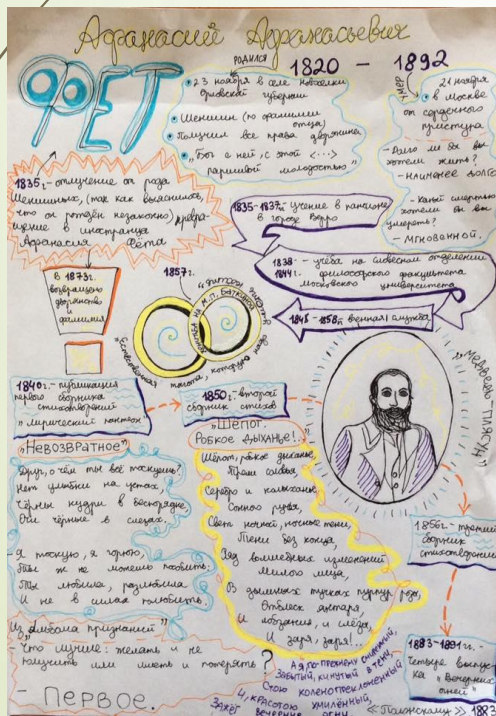 Афанасий Афанасьевич
ФЕТ
РОДИЛСЯ
1820 – 1892
УМЕР
• 23 ноября в селе Новосёлки
Орловской губернии
• Шеншин (по фамилии
отца)
• Получил все права дворянина
• "Бог с ней, с этой <...>
паршивой молодостью"
21 ноября
• в Москве
от сердечного
приступа
- Долго ли бы вы
хотели жить?
- Наименее долго
- Какой смертью
хотели бы вы
умереть?
- Мгновенной.
1835г.- отлучение от рода
Шеншиных, (так как выяснилось,
что он рождён незаконно) превра-
щение в иностранца
Афанасия Фёта
1835-1837г. учение в пансионе
в городе Верро
1838- - учёба на словесном отделении
1844г. философского факультета
московского университета
1845 - 1858г. военная служба
В 1873г.
возвращено
дворянство
и фамилия
1857г.
женитьба на М.П. Боткиной
"Естественная тягота, которую надо
"МЕДВЕДЬ-ПЛЯСУН"
1840г. - публикация
первого сборника
стихотворений
"Лирический пантеон"
1850г.- второй
сборник стихов
"Невозвратное"
Друг, о чём ты всё тоскуешь?
Нет улыбки на устах,
Чёрны кудри в беспорядке,
Очи чёрные в слезах.
- Я тоскую, я горюю,
Ты ж не можешь пособить:
Ты любила, разлюбила
И не в силах полюбить.
"Шёпот.
Робкое дыханье!.."
Шёпот, робкое дыханье,
Трели соловья,
Серебро и колыханье
Сонного ручья,
Свет ночной, ночные тени,
Тени без конца,
Ряд волшебных изменений
Милого лица,
В дымных тучках пурпур розы,
Отблеск янтаря,
И лобзания, и слёзы,
И заря, заря!...
1856г.- третий
сборник
стихотворений
1883-1891г. -
четыре выпус-
ка "Вечерних
огней"
Из "Альбома признаний"
- Что лучше: желать и не
получить или иметь и потерять?
- Первое.
А я по-прежнему смиренный,
Забытый, кинутый в тени,
Стою коленопреклоненный
И, красотою умиленный,
Зажёг вечерние огни
«Полонскому» 1883